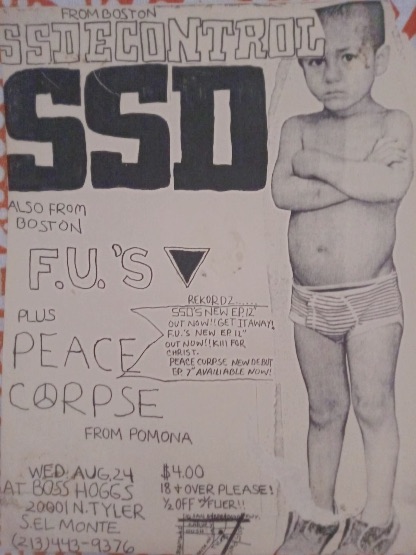 FROM BOSTON
SSDECONTROL
SSD
ALSO FROM
BOSTON
F.U.'S
REKORDZ......
SSD'S NEW EP 12"
OUT NOW!! GET IT AWAY!,
F.U.'S NEW EP 12"
OUT NOW!! KIII FOR
CHRIST.
PEACE CORPSE NEW DEBUT
EP. 7" AVAILIABLE NOW!
PLUS
PEACE
CORPSE
FROM POMONA
WED, AUG, 24
AT BOSS HOGGS
20001 N. TYLER
S.EL MONTE
(213)443-9376
$4.00
18 + OVER PLEASE!
½ OFF W/FLIER!!